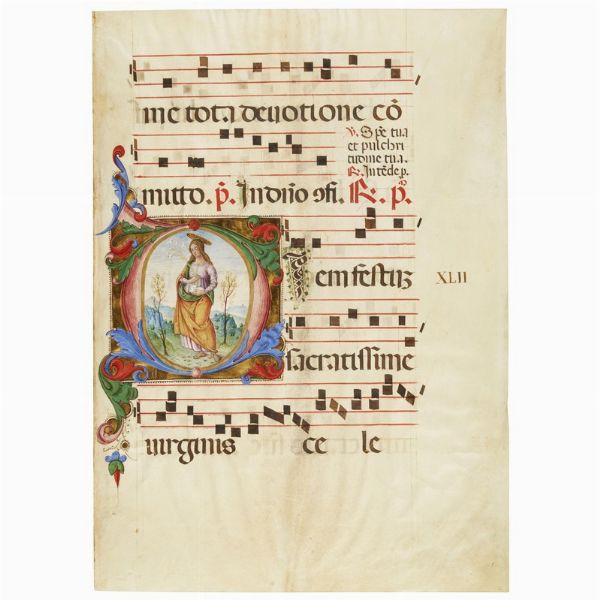 me tota deuotione cõ
℣. Spe tua
et pulchri
tudine tua.
℟. Intẽde p.
mitto. p̃. In dño ꝯfi. ℟. pº.
DIem festuʒ
XLII
sacratissime
uirginis ce le